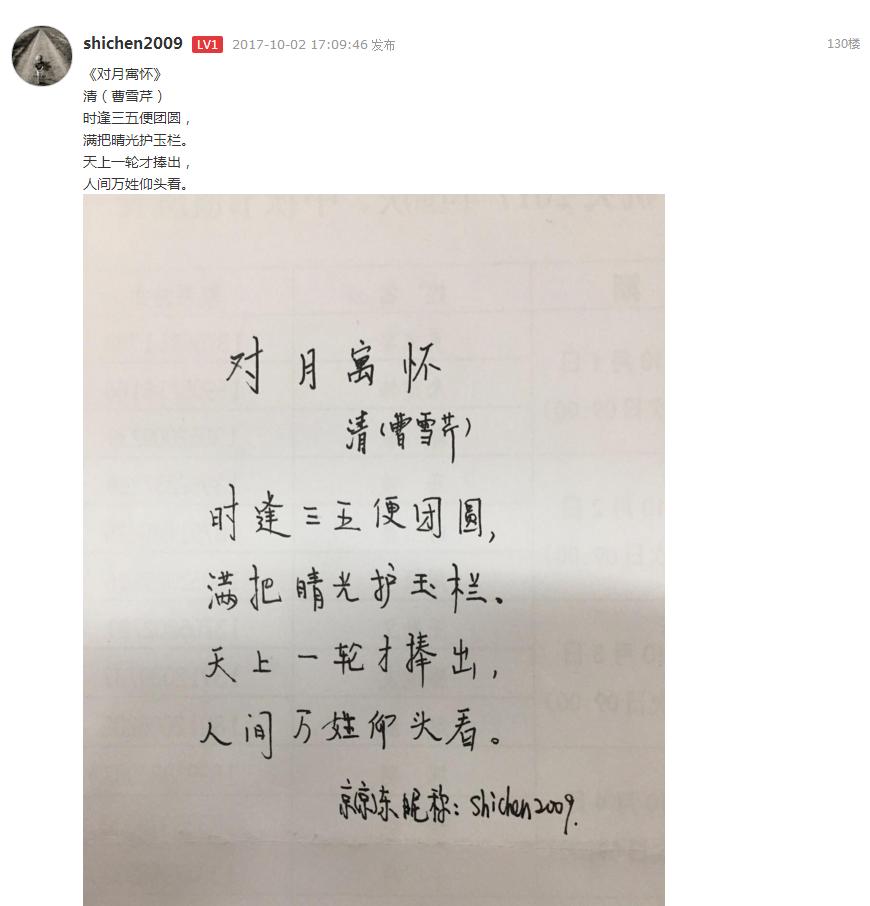 shichen2009 LV1 2017-10-02 17:09:46 发布 130楼
《对月寓怀》
清（曹雪芹）
时逢三五便团圆，
满把晴光护玉栏。
天上一轮才捧出，
人间万姓仰头看。
对月寓怀
清(曹雪芹)
时逢三五便团圆,
满把晴光护玉栏。
天上一轮才捧出,
人间万姓仰头看。
京京东昵称: shichen2009.